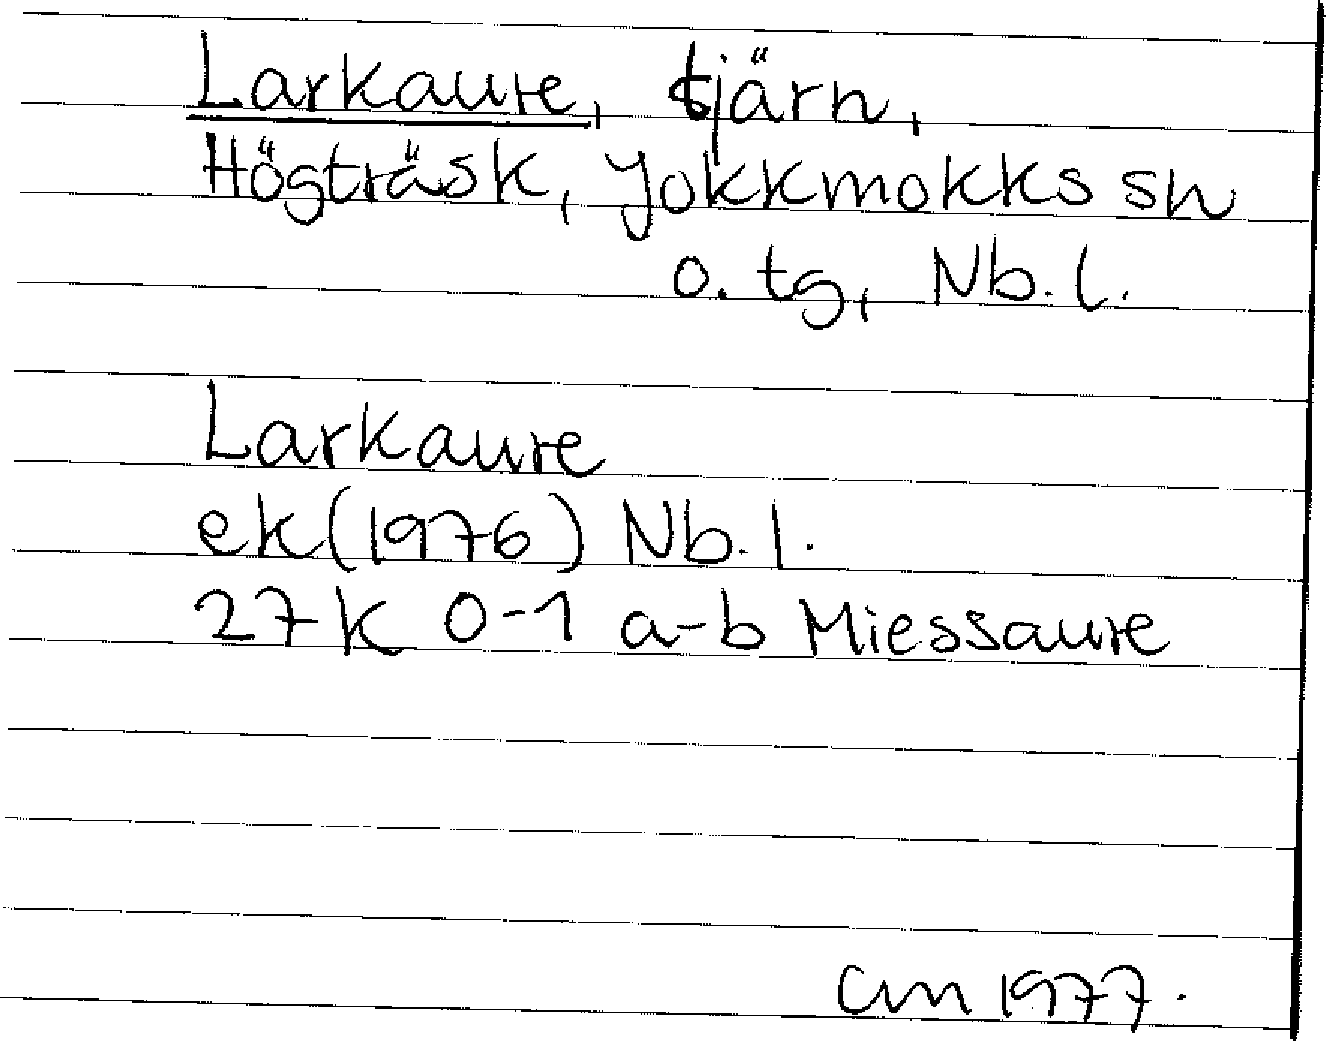 Larkaure, tjärn,
Högträsk, Jokkmokks sn
o. tg, Nb. l.
Larkaure
ek (1976) Nb. l.
27K 0-1 a-b Miessaure
Cm 1977.